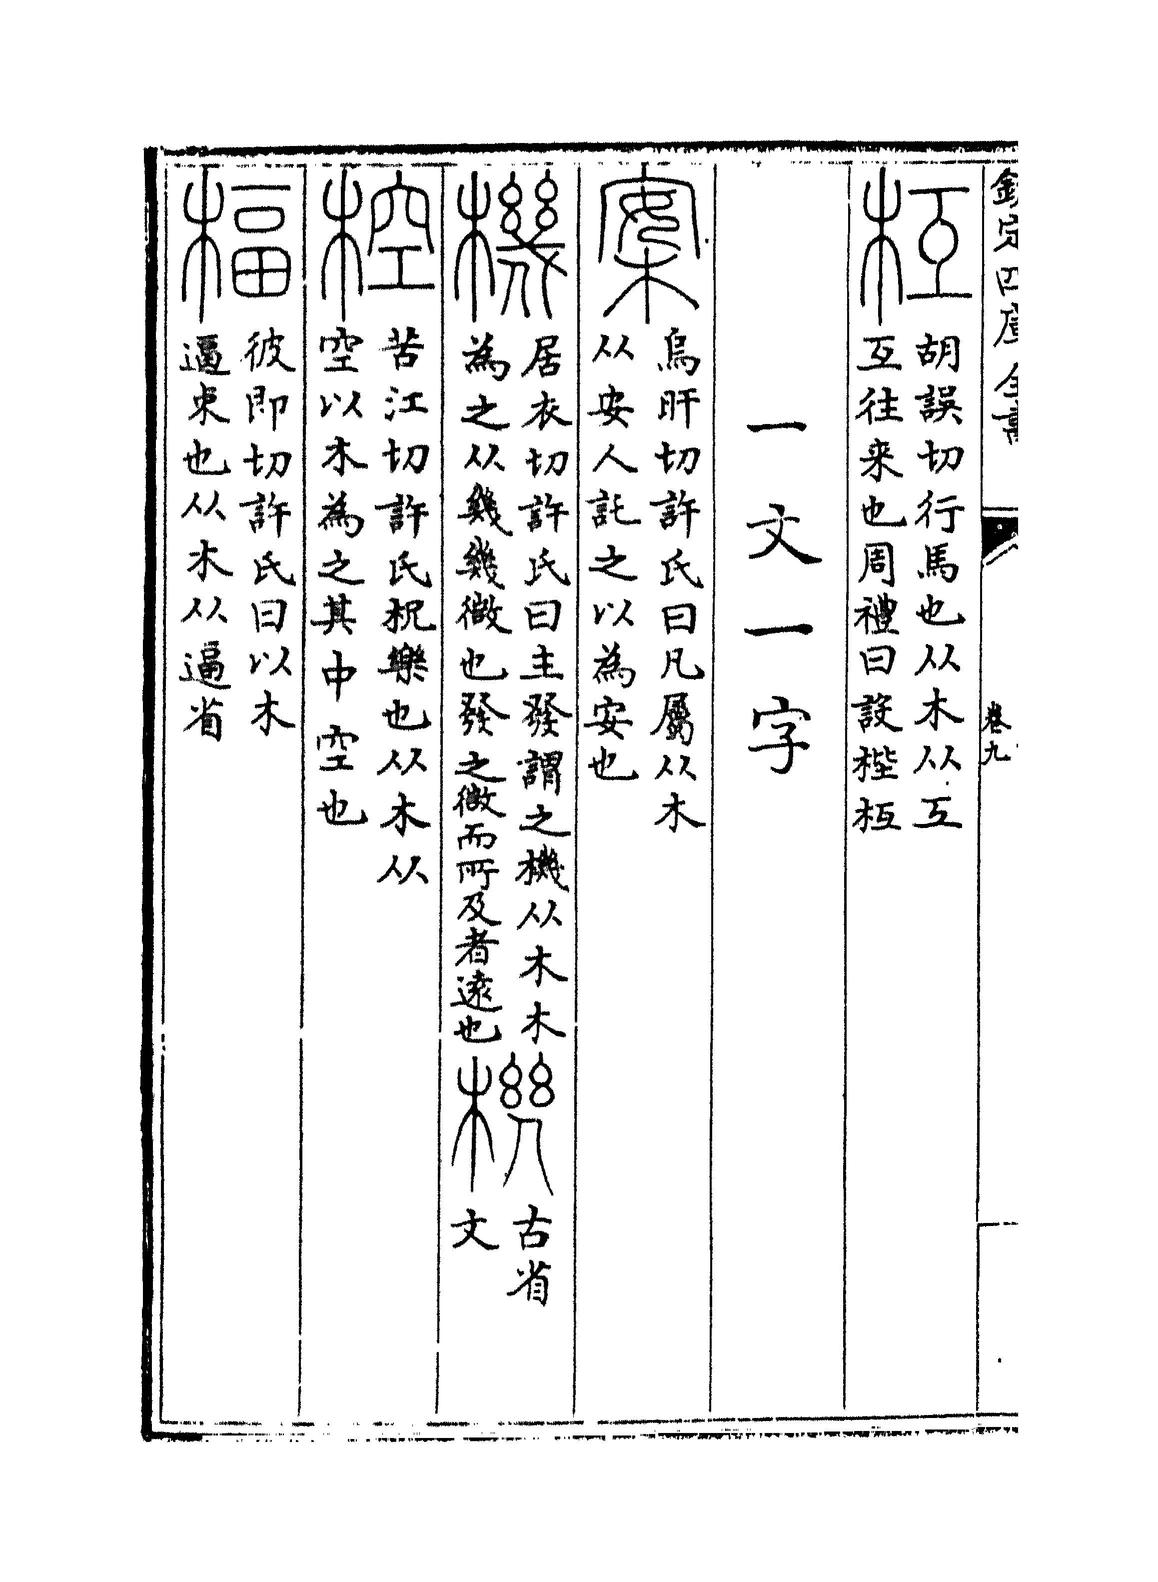 欽定四庫全書
卷九
枑
胡誤切行馬也从木从互
互往来也周禮曰設梐枑
一文一字
案
烏旰切許氏曰凡屬从木
从安人託之以為安也
機
居衣切許氏曰主發謂之機从木木
為之从幾幾微也發之微而所及者遠也
𣏔
古省
文
椌
苦江切許氏柷樂也从木从
空以木為之其中空也
楅
彼即切許氏曰以木
逼束也从木从逼省